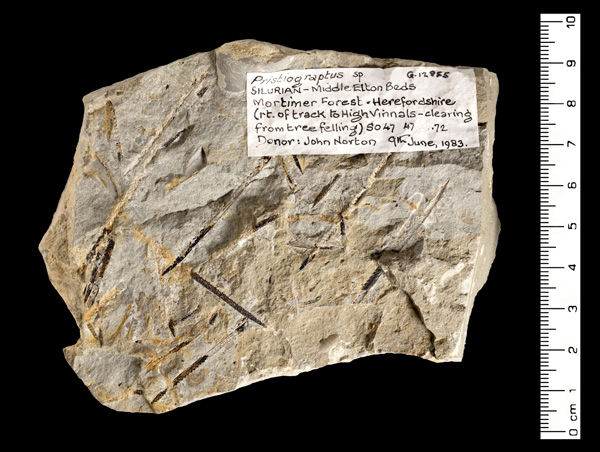 Pristiograptus sp. G.12855
SILURIAN - Middle Elton Beds
Mortimer Forest - Herefordshire
(rt. of track to High Vinnals - clearing
from tree felling) SO 47 47 .72
Donor: John Norton 9th June, 1983.
10
9
8
7
6
5
4
3
2
1
0 cm